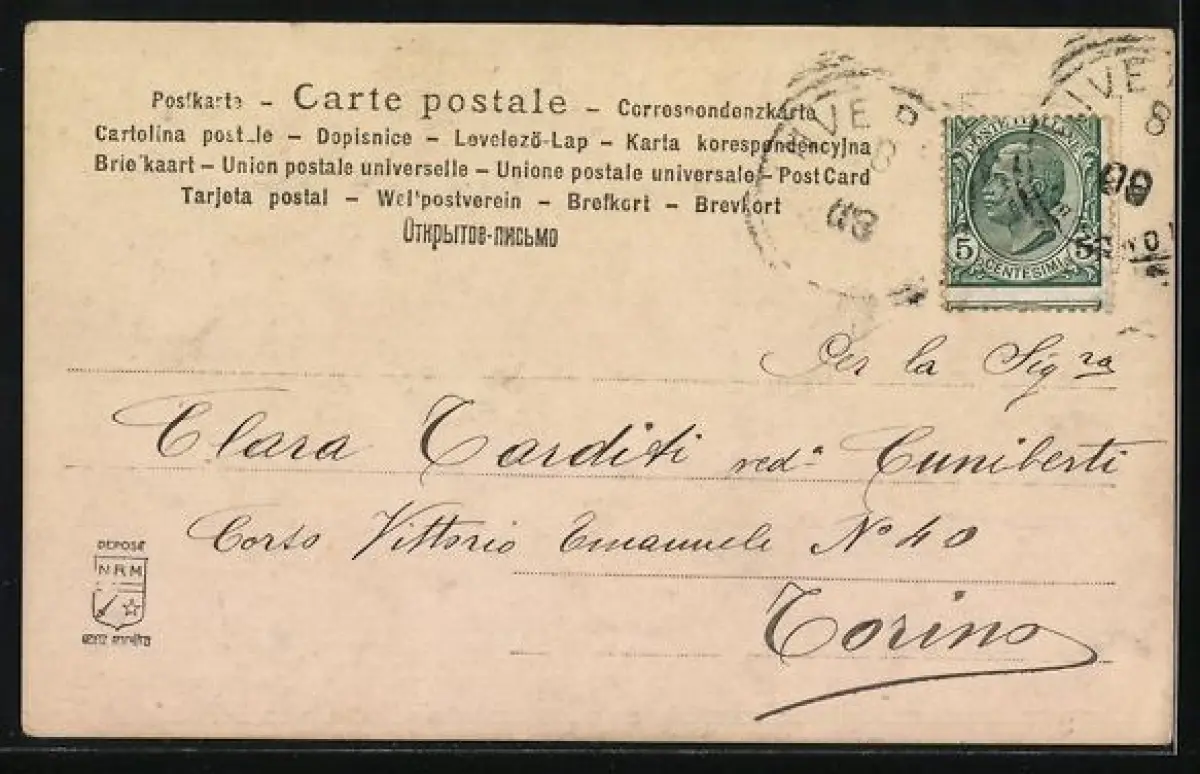 Postkarte – Carte postale – Correspondenzkarte
Cartolina postale – Dopisnice – Levelező-Lap – Karta korespondencyjna
Briefkaart – Union postale universelle – Unione postale universale – Post Card
Tarjeta postal – Weltpostverein – Brefkort – Brevkort
Открытое-письмо
8
8
09
POSTE ITALIANE
5 5
CENTESIMI
Per la Sigra
Clara Tarditi ved.a Cuniberti
Corso Vittorio Emanuele No 40
Torino
DEPOSÉ
NRM